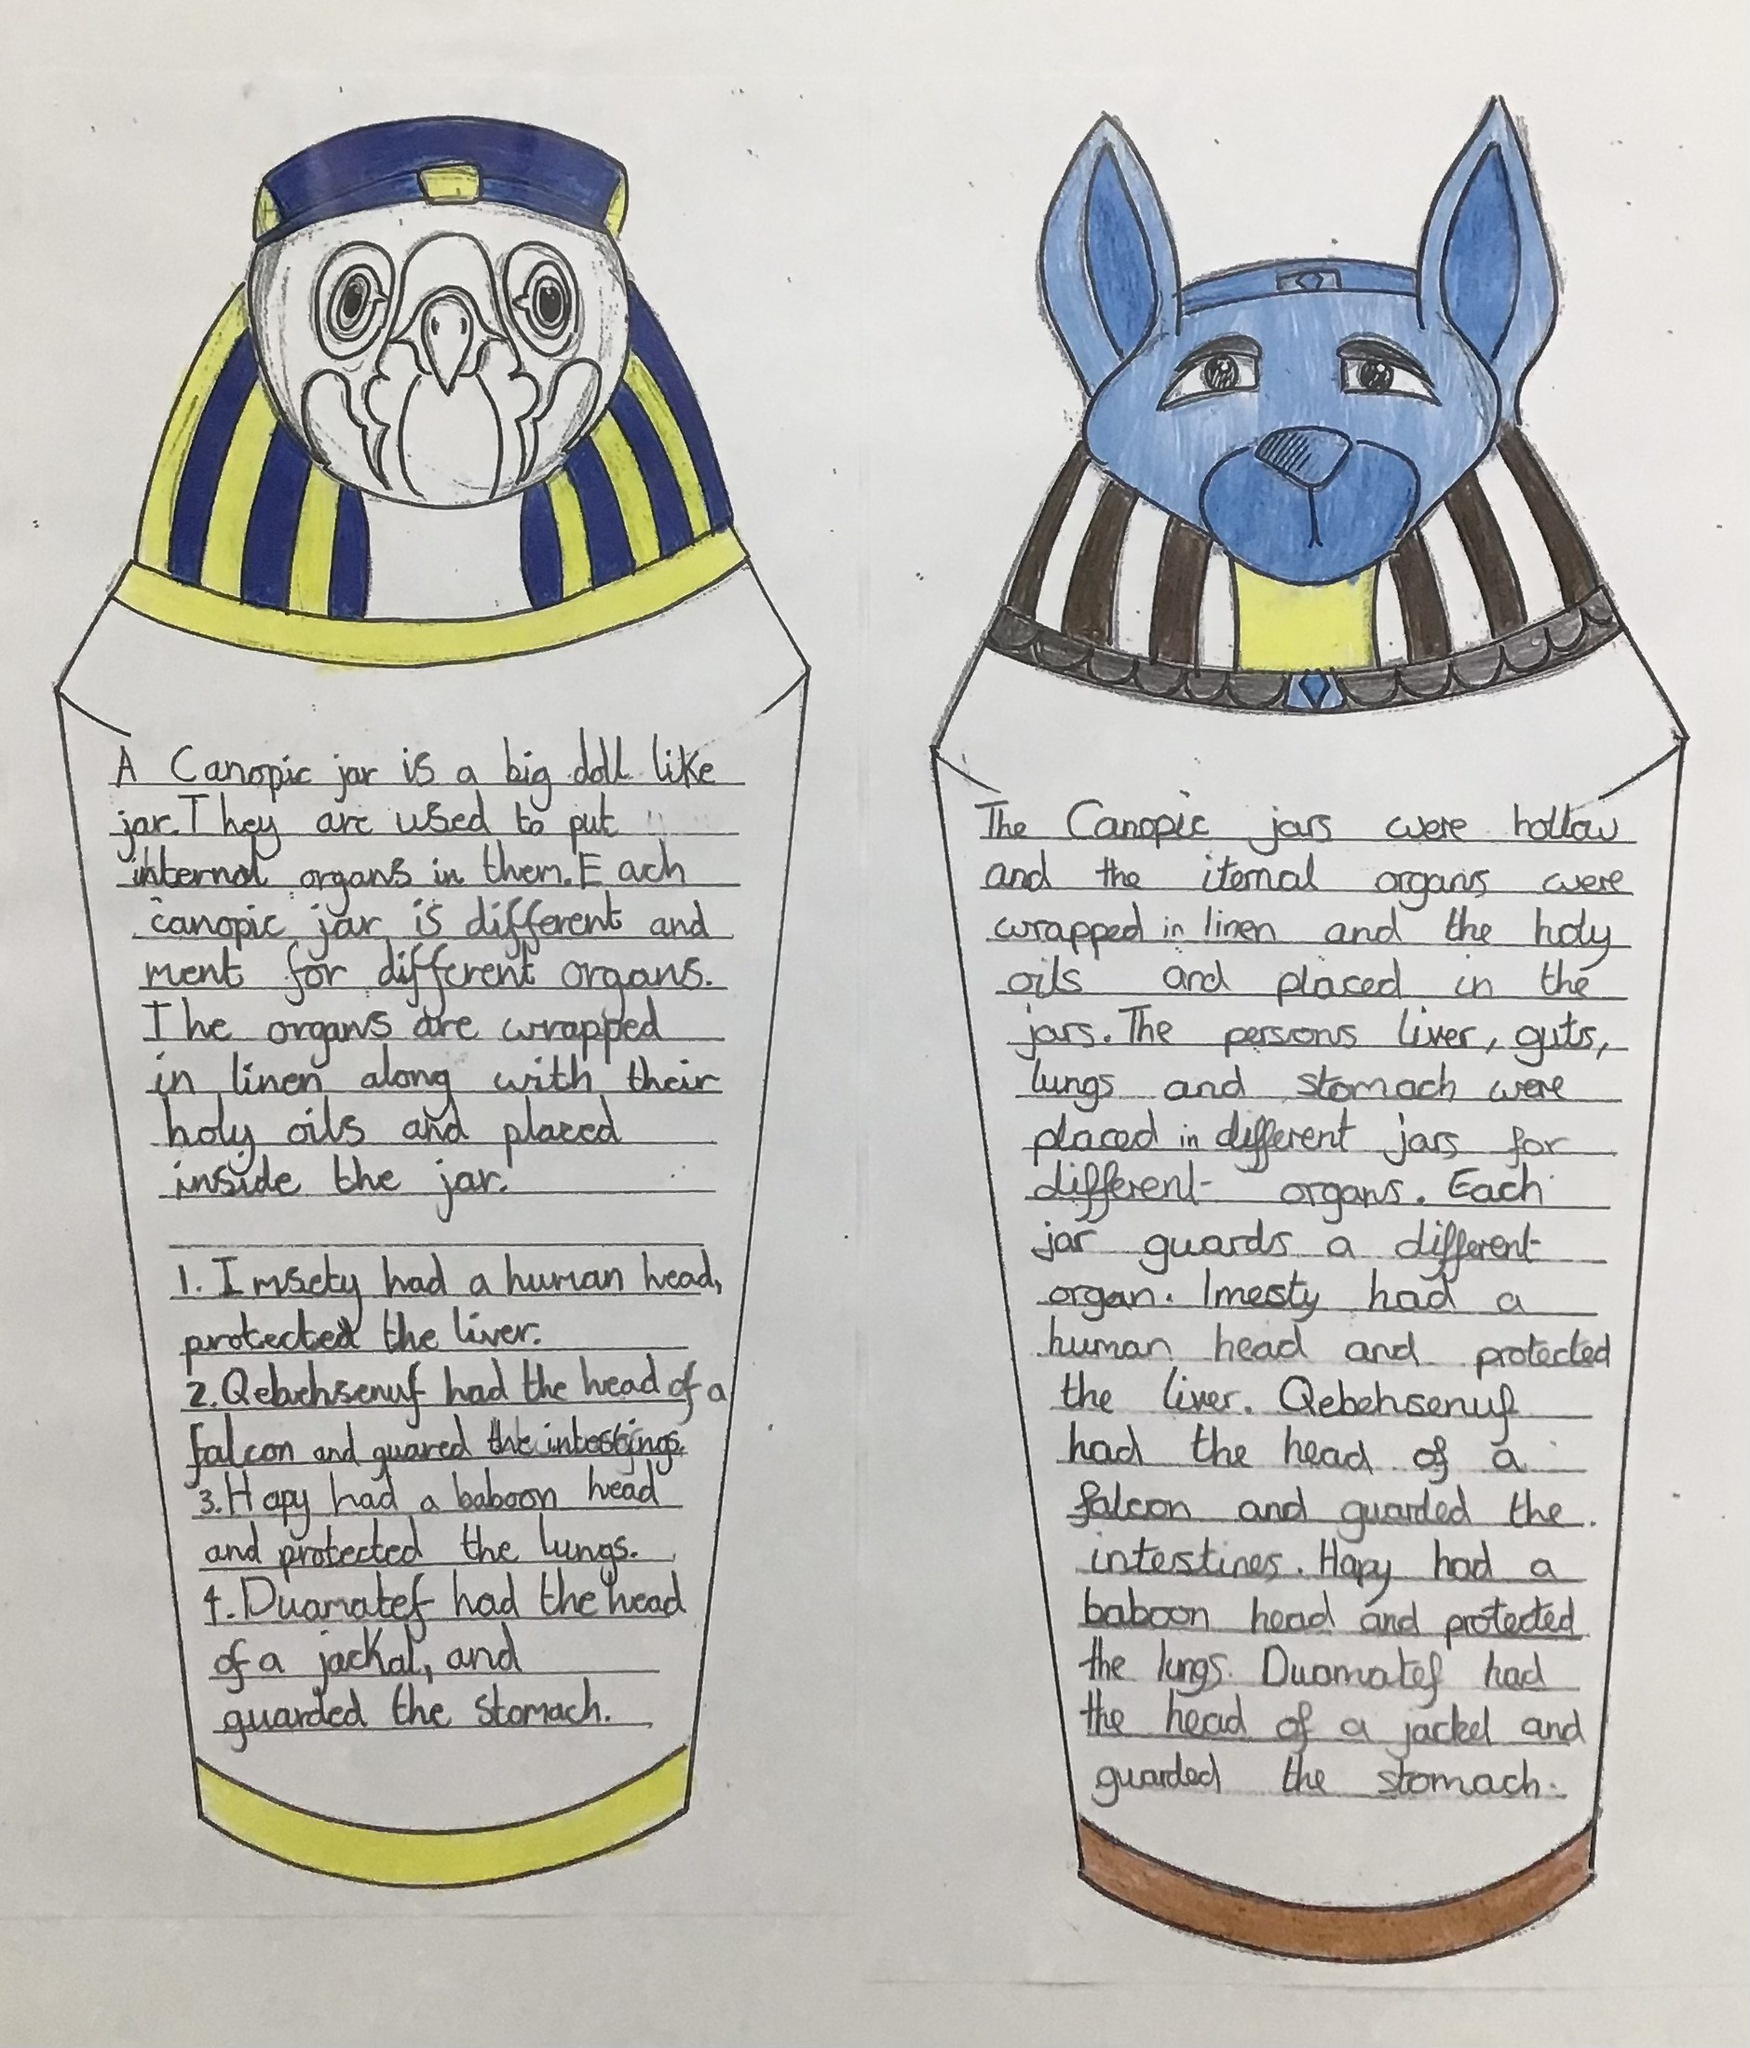 A Canopic jar is a big doll like
jar. They are used to put
internal organs in them. Each
canopic jar is different and
ment for different organs.
The organs are wrapped
in linen along with their
holy oils and placed
inside the jar.
1. Imsety had a human head,
protected the liver.
2. Qebehsenuf had the head of a
falcon and guared the
3. Hapy had a baboon head
and protected the lungs.
4. Duamatef had the head
of a jackal, and
guarded the stomach.
The Canopic jars were hollow
and the iternal organs were
wrapped in linen and the holy
oils and placed in the
jars. The persons liver, guts,
lungs and stomach were
placed in different jars for
different organs. Each
jar guards a different
organ. Imesty had a
human head and protected
the liver. Qebehsenuf
had the head of a
falcon and guarded the
intestines. Hapy had a
baboon head and protected
the lungs. Duamatef had
the head of a jackel and
guarded the stomach.